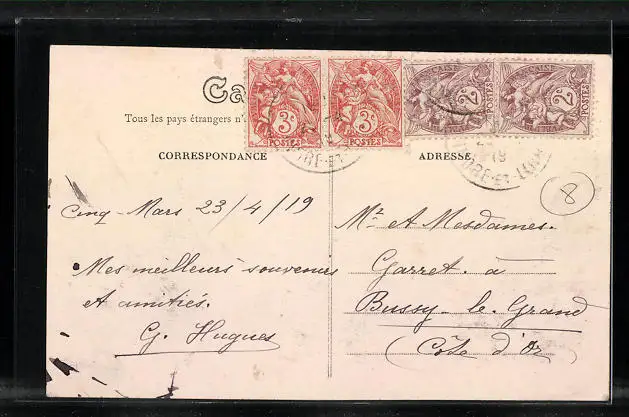 Ca
Tous les pays étrangers n'
CORRESPONDANCE
ADRESSE
3c
POSTES
3c
POSTES
2c
POSTES
2c
POSTES
19
INDRE-ET-LOIRE
8
Cinq-Mars 23/4/19
Mes meilleurs souvenirs
et amitiés.
G. Hugues
Mr et Mesdames.
Garret. à
Bussy-le-Grand
(Côte d'Or)